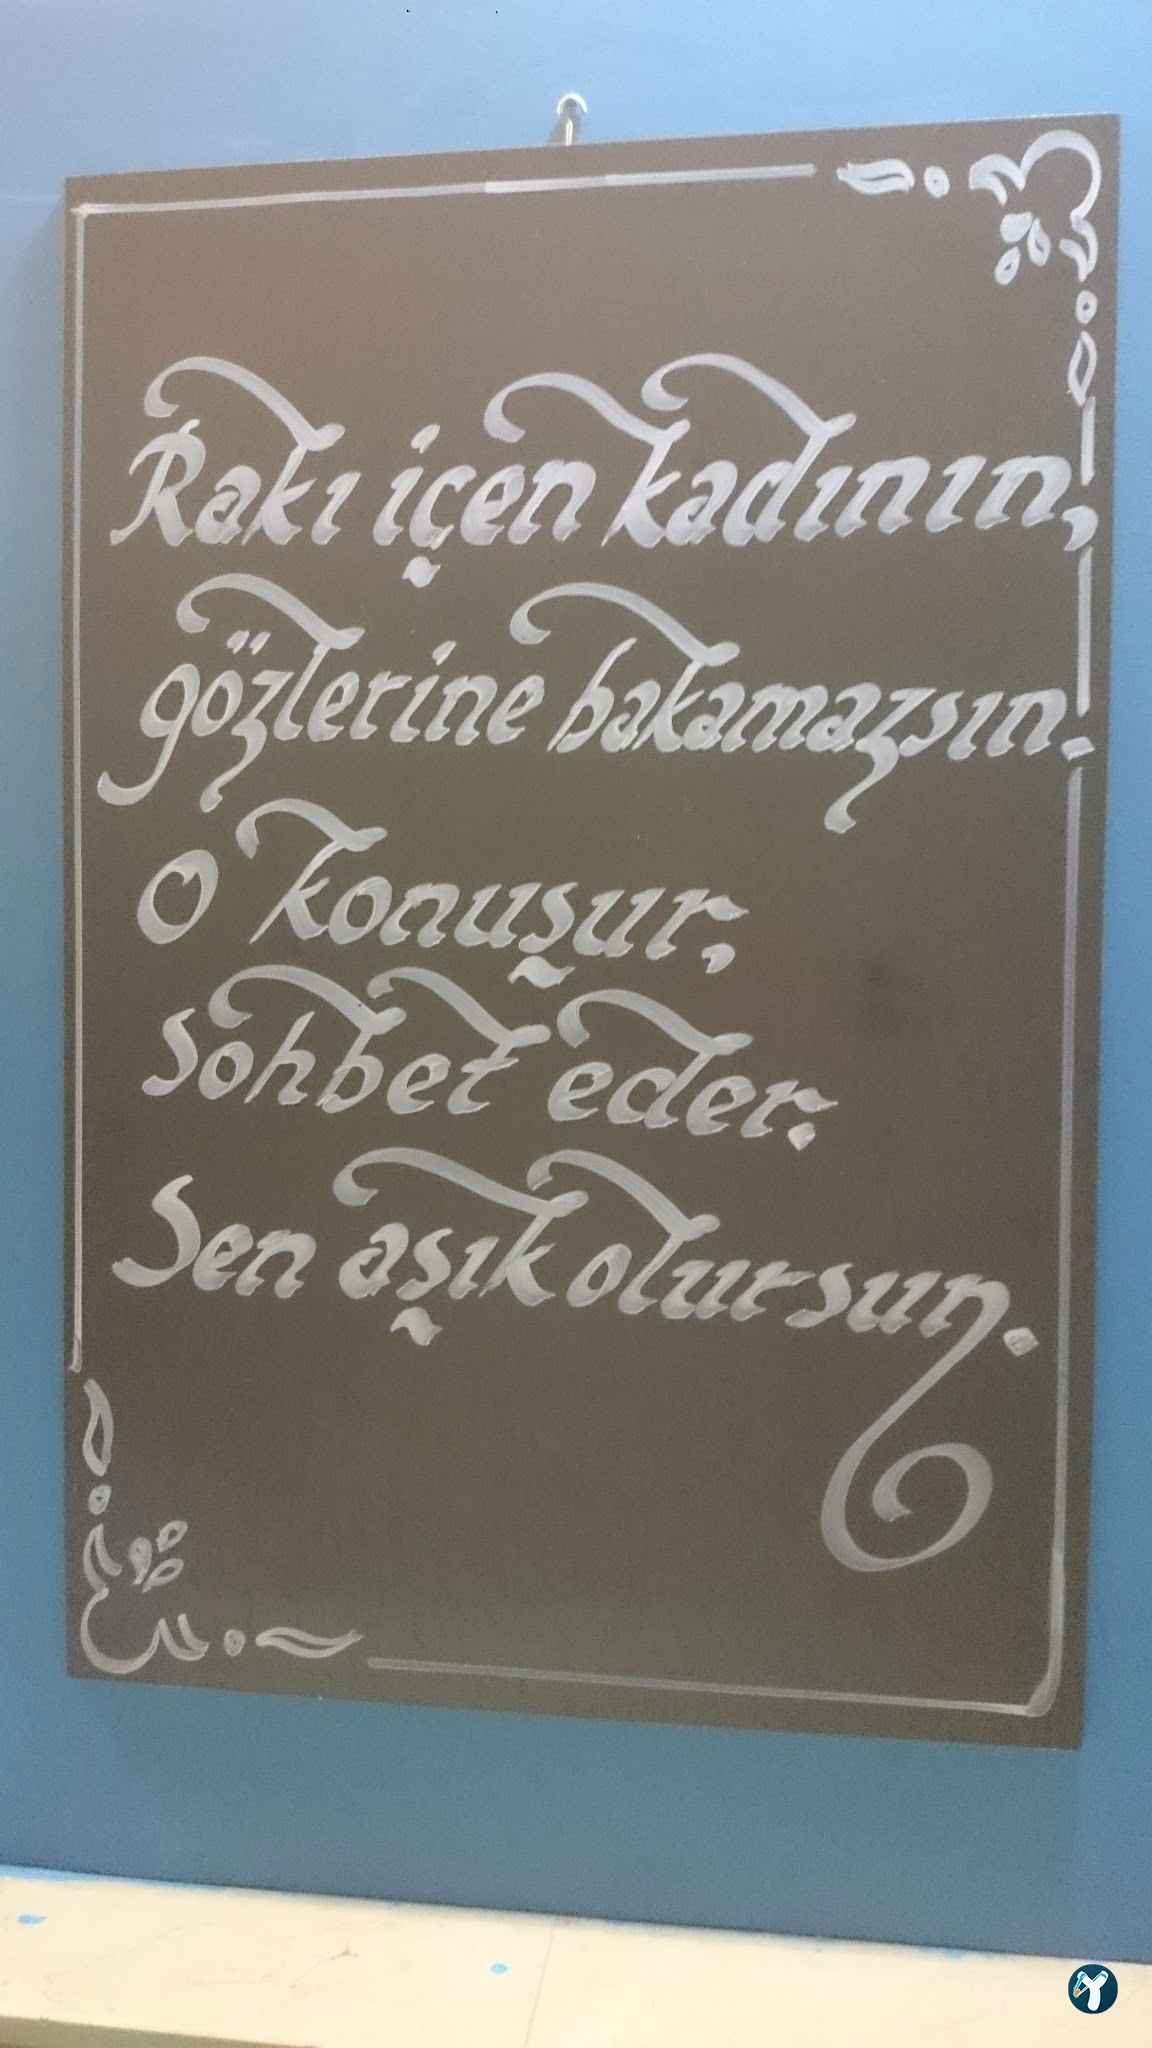 Rakı içen kadının,
gözlerine bakamazsın.
O konuşur,
Sohbet eder.
Sen aşık olursun.